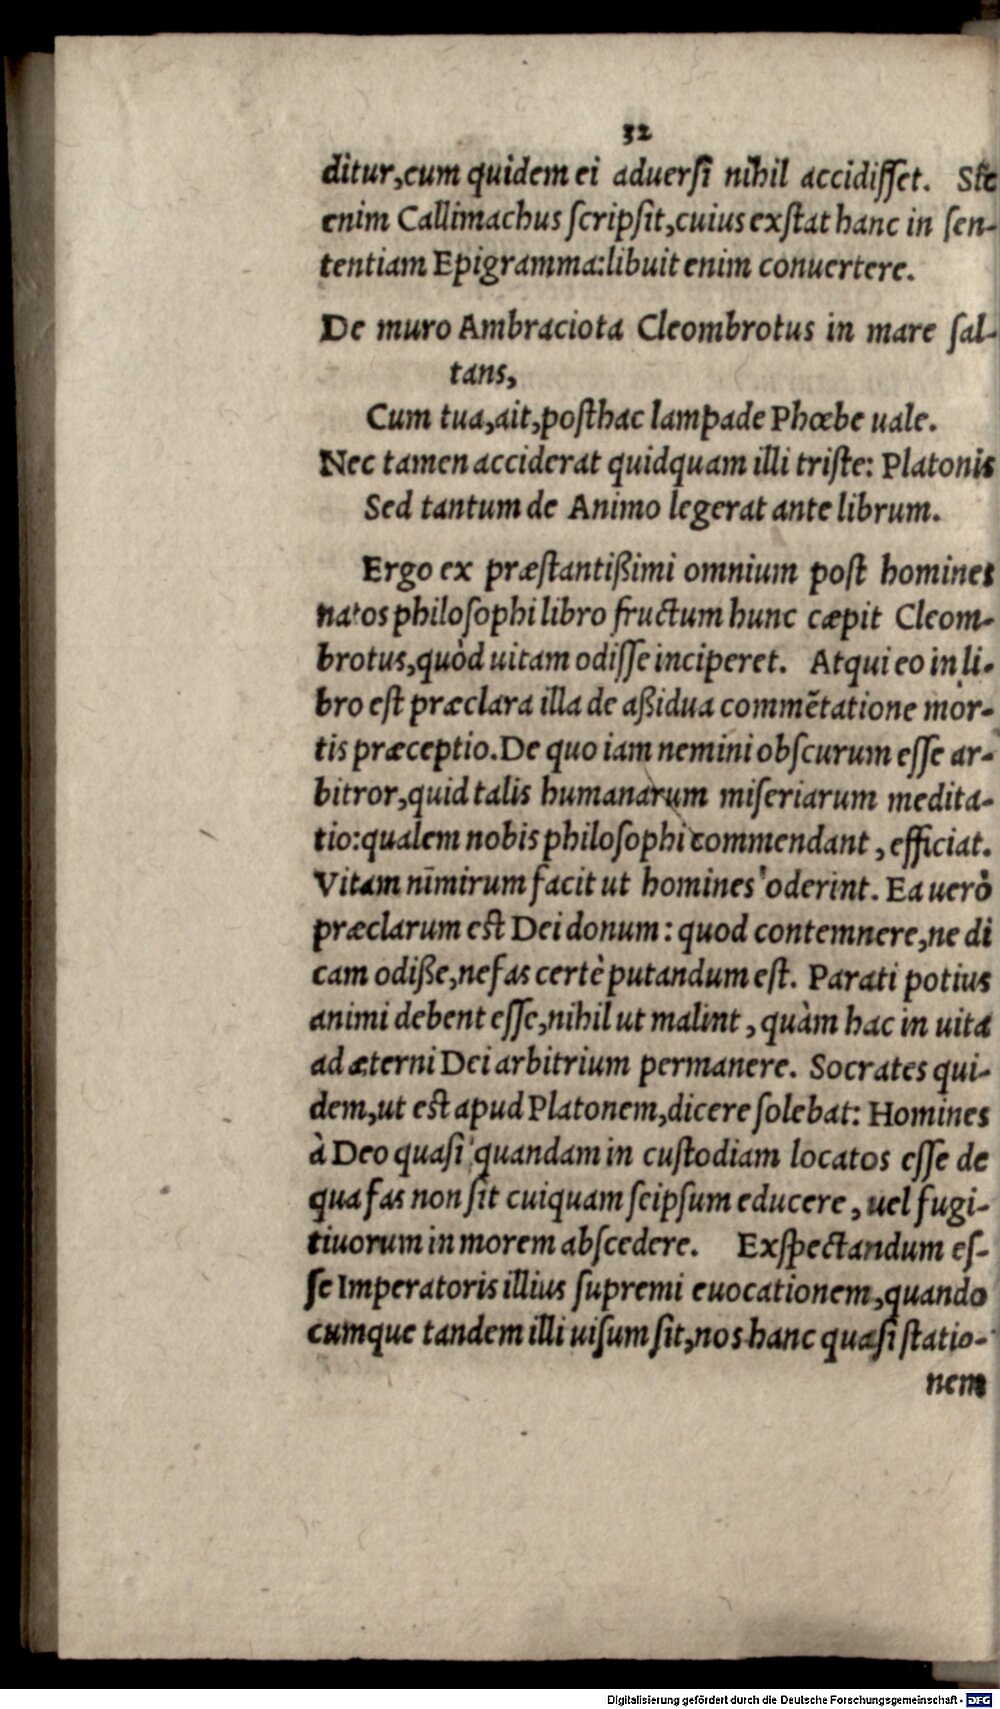 32
ditur,cum quidem ei aduersi nihil accidisset. Sic
enim Callimachus scripsit,cuius exstat hanc in sen-
tentiam Epigramma:libuit enim conuertere.
De muro Ambraciota Cleombrotus in mare sal-
tans,
Cum tua,ait,posthac lampade Phœbe uale.
Nec tamen acciderat quidquam illi triste: Platonis
Sed tantum de Animo legerat ante librum.
Ergo ex præstantißimi omnium post homines
natos philosophi libro fructum hunc cæpit Cleom-
brotus,quòd uitam odisse inciperet. Atqui eo in li-
bro est præclara illa de aßidua commẽtatione mor-
tis præceptio.De quo iam nemini obscurum esse ar-
bitror,quid talis humanarum miseriarum medita-
tio:qualem nobis philosophi commendant, efficiat.
Vitam nimirum facit ut homines oderint. Ea uerò
præclarum est Dei donum: quod contemnere,ne di
cam odiße,nefas certè putandum est. Parati potius
animi debent esse,nihil ut malint, quàm hac in uita
ad æterni Dei arbitrium permanere. Socrates qui-
dem,ut est apud Platonem,dicere solebat: Homines
à Deo quasi quandam in custodiam locatos esse de
qua fas non sit cuiquam seipsum educere, uel fugi-
tiuorum in morem abscedere. Exspectandum es-
se Imperatoris illius supremi euocationem,quando
cumque tandem illi uisum sit,nos hanc quasi statio-
nem
Digitalisierung gefördert durch die Deutsche Forschungsgemeinschaft - DFG